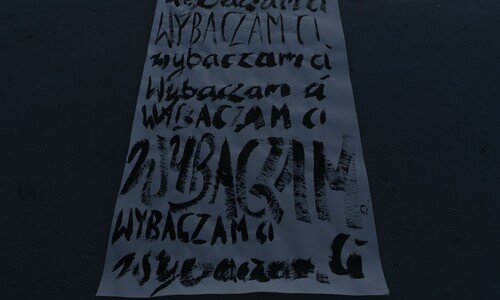 Wybaczam ci
WYBACZAM CI
wybaczam ci
Wybaczam ci
WYBACZAM CI
WYBACZAM
WYBACZAM ci
wybaczam ci